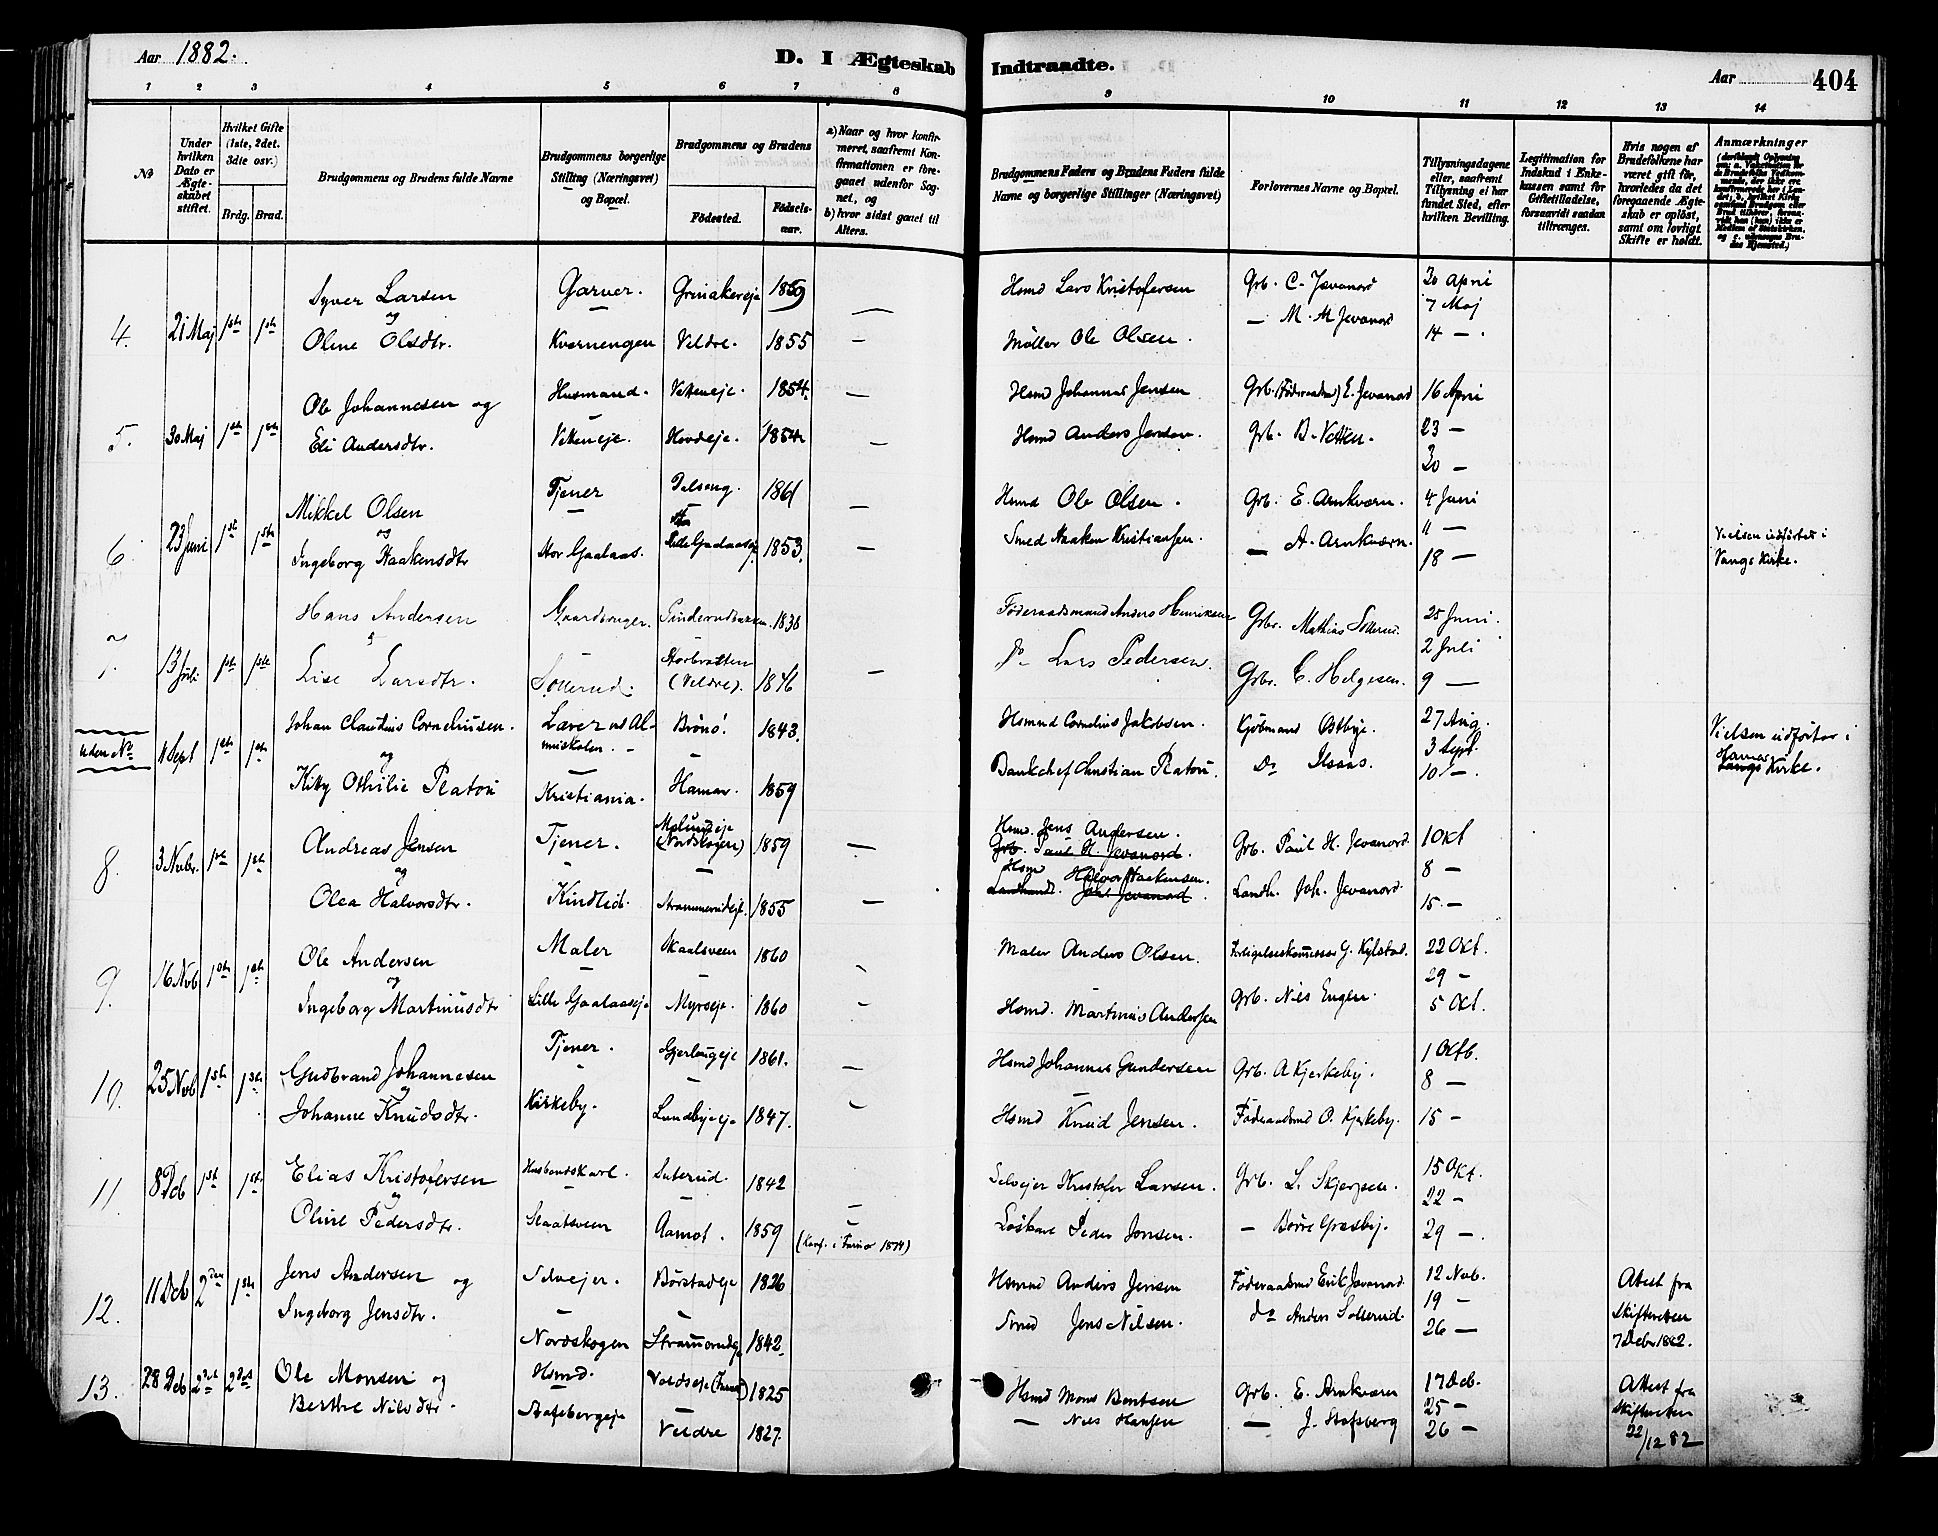 Aar 1882.
D. I Ægteskab Indtraadte.
Aar 404
1 2 3 4 5 6 7 8 9 10 11 12 13 14
No
Under hvilken Dato er Ægteskabet stiftet.
Hvilket Gifte (1ste, 2det, 3die osv.)
Brdg. Brud.
Brudgommens og Brudens fulde Navne
Brudgommens borgerlige Stilling (Næringsvei) og Bopæl.
Brudgommens og Brudens
Fødested. Fødselsaar.
a) Naar og hvor konfirmeret, saafremt Konfirmationen er foregaaet udenfor Sognet, og
b) hvor sidst gaaet til Alters.
Brudgommens Faders og Brudens Faders fulde Navne og borgerlige Stillinger (Næringsvei)
Forlovernes Navne og Bopæl.
Tillysningsdagene eller, saafremt Tillysning ei har fundet Sted, efter hvilken Bevilling.
Legitimation for Indskud i Enkekassen samt for Giftetilladelse, forsaavidt saadan tiltrænges.
Hvis nogen af Brudefolkene har været gift før, hvorledes da det foregaaende Ægteskab er opløst, samt om lovligt Skifte er holdt.
Anmærkninger
4. 21 Maj 1ste 1ste
Syver Larsen Garver. Grinakereje 1859 — Hsmd Lars Kristofersen Grb. C. Jevanord 30 April
og — M. M Jevanord 7 Maj
Oline Olsdtr. Kvernengen Veldre. 1855 — Møller Ole Olsen. 14 —
5. 30 Maj 1ste 1ste
Ole Johannesen og Husmand. Vetteneje. 1854. — Hsmd Johannes Jensen Grb. (Føderaadsm) E. Jevanord 16 April
Eli Andersdtr. Vetteneje. Hovdeje. 1854 — Hsmd Anders Jensen. Grb. B. Vetten. 23 —
30 —
6 23 Juni 1ste 1ste
Mikkel Olsen Tjener 1861 — Hsmd Ole Olsen. Grb. E. Arnkværn. 4 Juni
og 11 —
Ingeborg Haakensdtr Stor Gaalaas. Lille Gaalaaseje 1853. — Smed Haaken Kristiansen. — A. Arnkværn. 18 — Vielsen udførtes i Vangs Kirke.
7. 13 Juli 1ste 1ste
Hans Andersen Gaardbruger. 1836 Føderaadsmand Anders Henriksen Grbr. Mathias Sollerud. 25 Juni.
& 2 Juli
Lise Larsdtr. Sollerud. Storbratten (Veldre). 1846 — Lars Pedersen. Grbr. C. Helgesen. 9 —
uden No 11 Sept 1ste 1ste
Johan Claudius Corneliussen. Lærer ved Almueskolen. Brönö. 1843. Hsmnd Cornelius Jakobsen. Kjøbmand Østbye. 27 Aug.
og 3 Sept.
Kitty Othilie Platou Kristiania. Hamar. 1859 Bankchef Christian Platou. Do Ilsaas. 10 — Vielsen udførtes i Hamar Kirke.
8. 3 Novbr. 1ste 1ste
Andreas Jensen Tjener. (Nordskogen) 1859 — Hsmd. Jens Andersen. Grb. Paul H. Jevanord 1 Okt
Grb. Paul H. Jevanord.
og 8 —
Olea Halvorsdtr. Kindlid. 1855 — Hsmd Halvor Haakensen. Landh. Joh. Jevanord. 15 —
9. 16 Nov 1ste 1ste
Ole Andersen Maler Skaalsveen 1860 Maler Anders Olsen. Forligelseskommissær G. Kylstad. 22 Okt.
og 29 —
Ingeborg Martinusdtr Lille Gaalaaseje Myrseje. 1860 Hsmd. Martinus Andersen Grb. Nils Engen. 5 Okt.
10. 25 Nov 1ste 1ste
Gudbrand Johannesen Tjener. 1861. — Hsmd Johannes Gundersen Grb. A Kjerkeby. 1 Oktb.
og 8 —
Johanne Knudsdtr. Kirkeby. Lundbyeje 1847. Hsmd Knud Jensen. Føderaadsmd O. Kjerkeby. 15 —
11. 8 Deb 1ste 1ste
Elias Kristofersen Husbondskarl. Suterud. 1842 Selvejer Kristofer Larsen. Grb. L. Skjerpen. 15 Okt.
og 22 —
Oline Pedersdtr. Skaalsveen Aamot. 1859 (Konf. i Furnes 1874) Löskarl Peder Jonsen. — Børre Græsby. 29 —
12. 11 Deb 2den 1ste
Jens Andersen og Selvejer. Börstadeje 1826 Hsmnd Anders Jensen Føderaadsmd Erik Jevanord. 12 Nvb. Attest fra Skifteretten 7 Debr 1882.
19 —
Ingeborg Jensdtr. Nordskogen 1842. Smed Jens Nilsen. do Anders Sollerud. 26 —
13. 28 Deb 2det 2det
Ole Monsen og Hsmd. 1825 Hsmd Mons Bentsen Grb. E. Arnkværn 17 Deb. Attest fra Skifteretten 22/12 82
25 —
Berthe Nilsdtr. Stafsbergeje Veldre 1827. — Nils Hansen — J. Stafsberg 26 —